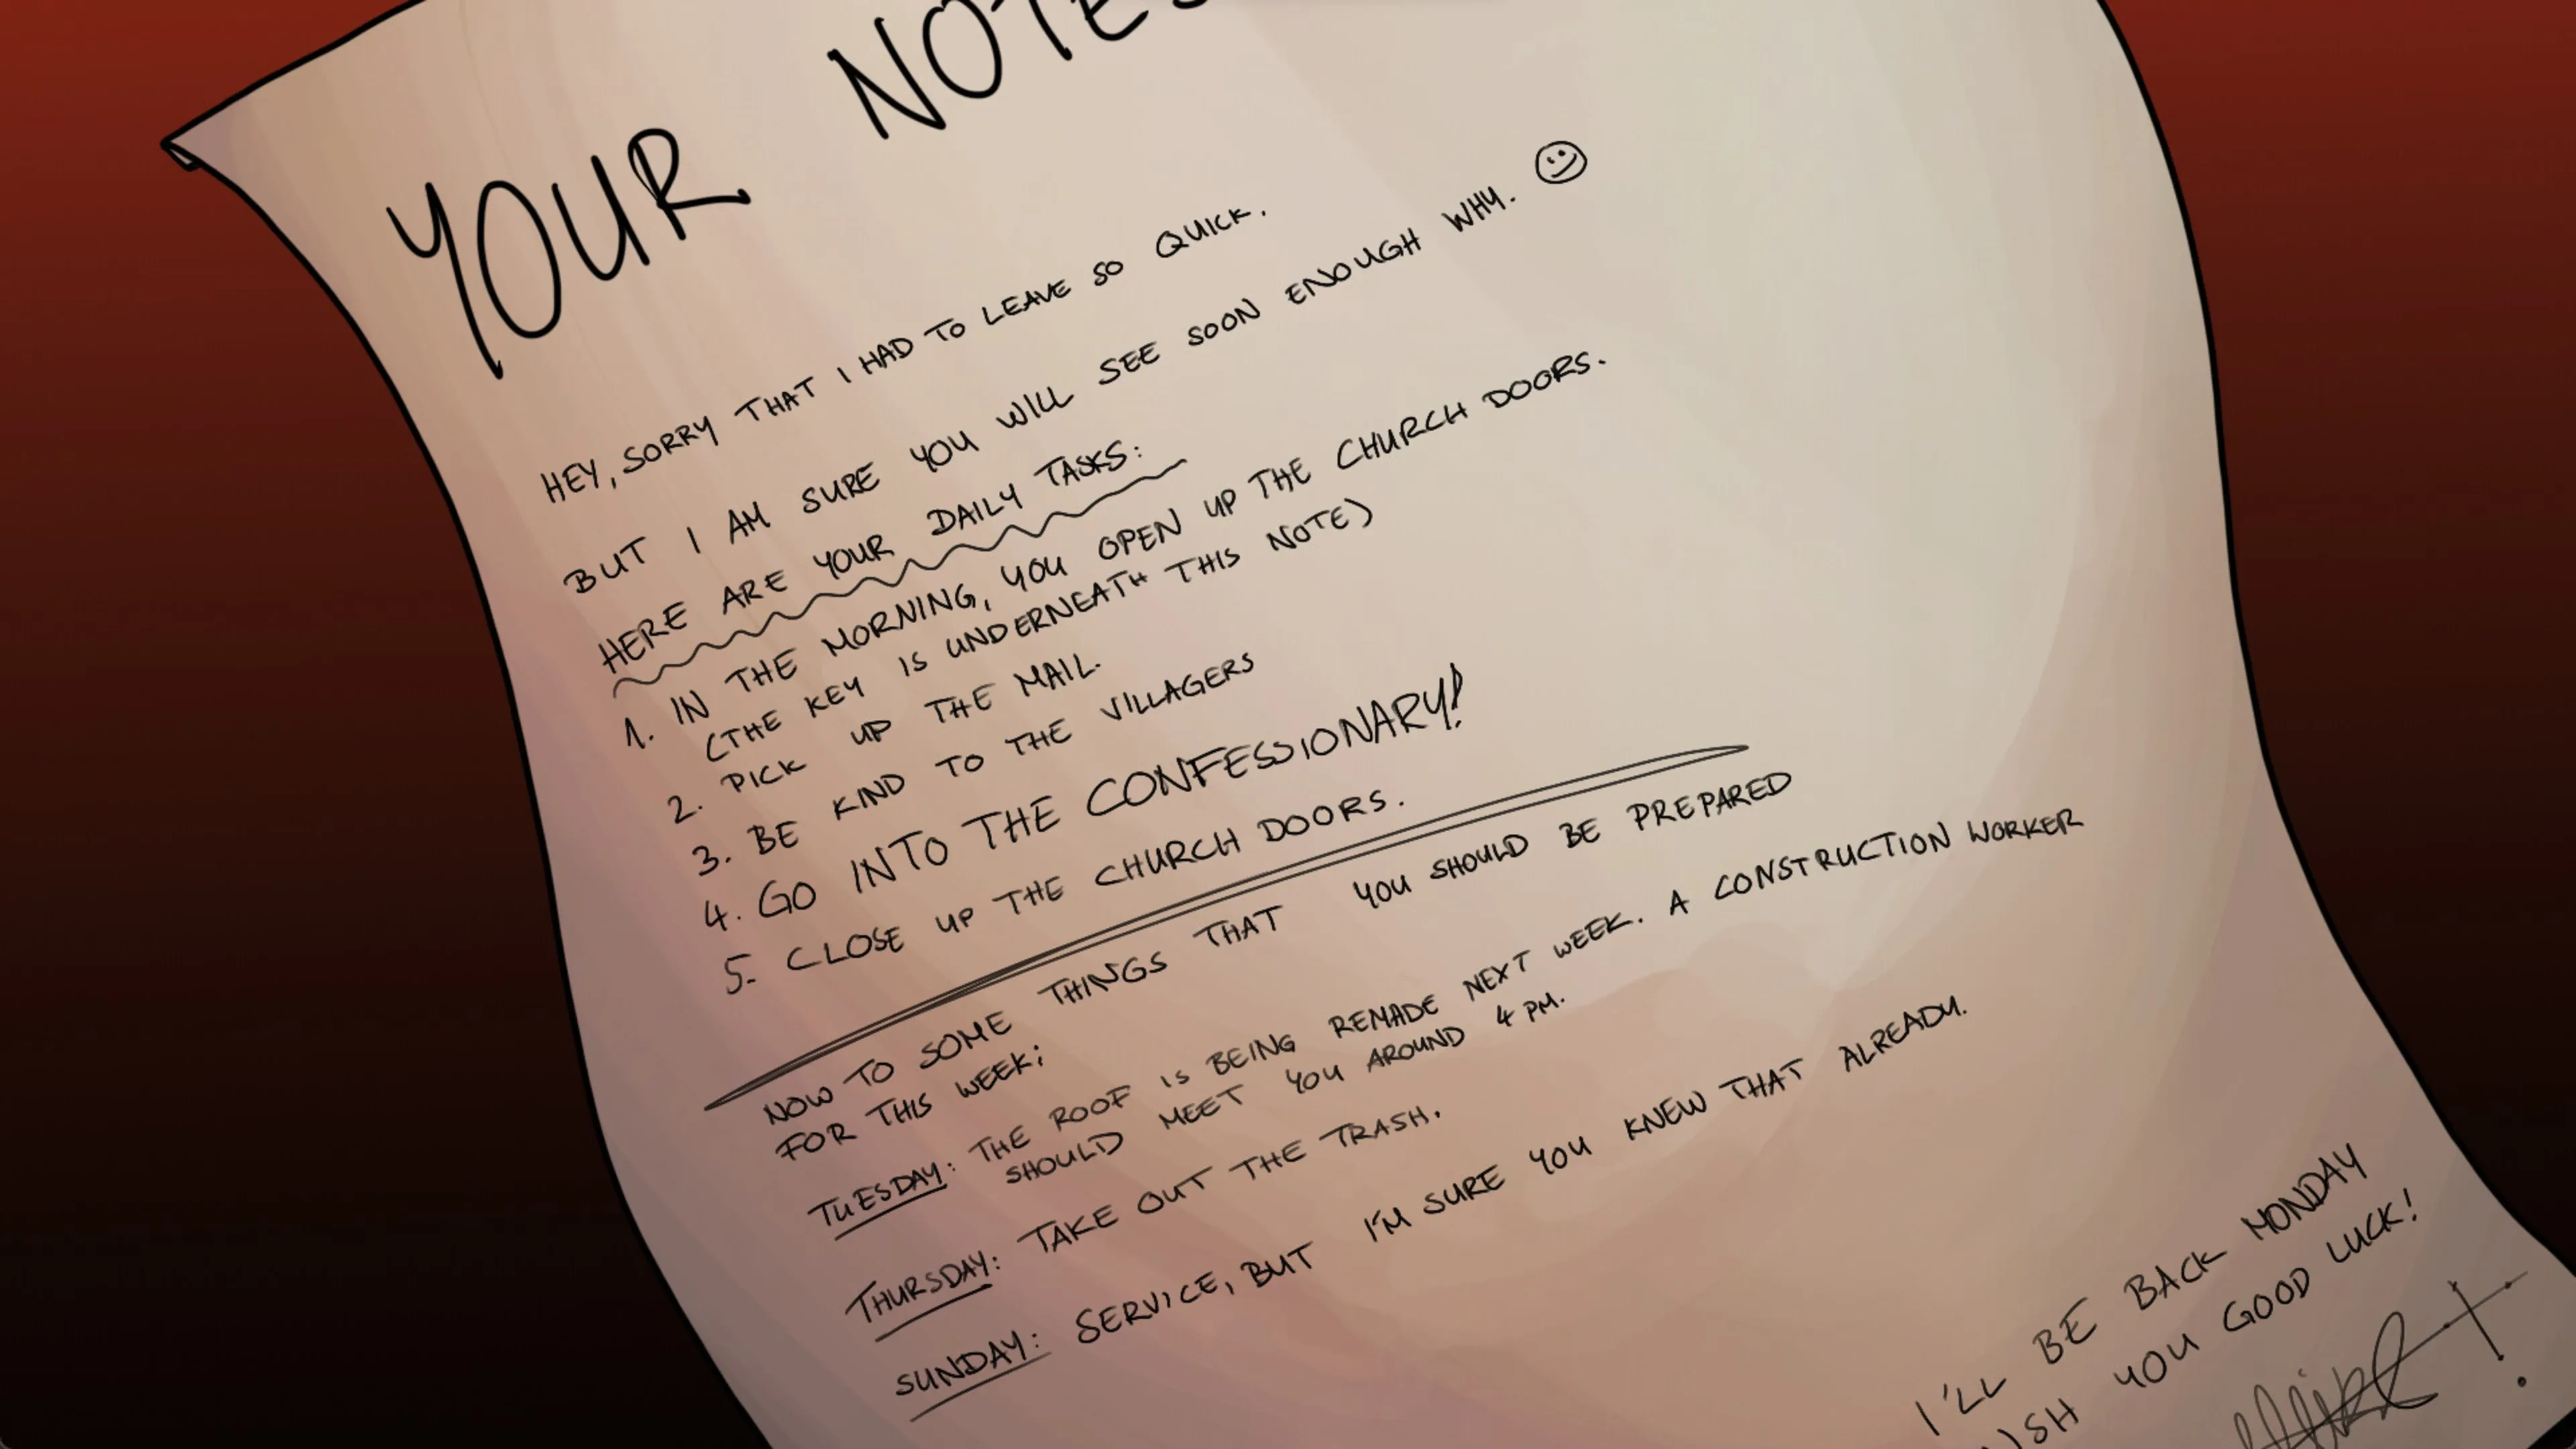 YOUR NOTES
HEY, SORRY THAT I HAD TO LEAVE SO QUICK.
BUT I AM SURE YOU WILL SEE SOON ENOUGH WHY.
HERE ARE YOUR DAILY TASKS:
1. IN THE MORNING, YOU OPEN UP THE CHURCH DOORS.
(THE KEY IS UNDERNEATH THIS NOTE)
2. PICK UP THE MAIL.
3. BE KIND TO THE VILLAGERS
4. GO INTO THE CONFESSIONARY!
5. CLOSE UP THE CHURCH DOORS.
NOW TO SOME THINGS THAT YOU SHOULD BE PREPARED
FOR THIS WEEK:
TUESDAY: THE ROOF IS BEING REMADE NEXT WEEK. A CONSTRUCTION WORKER
SHOULD MEET YOU AROUND 4 PM.
THURSDAY: TAKE OUT THE TRASH.
SUNDAY: SERVICE, BUT I'M SURE YOU KNEW THAT ALREADY.
I'LL BE BACK MONDAY
WISH YOU GOOD LUCK!